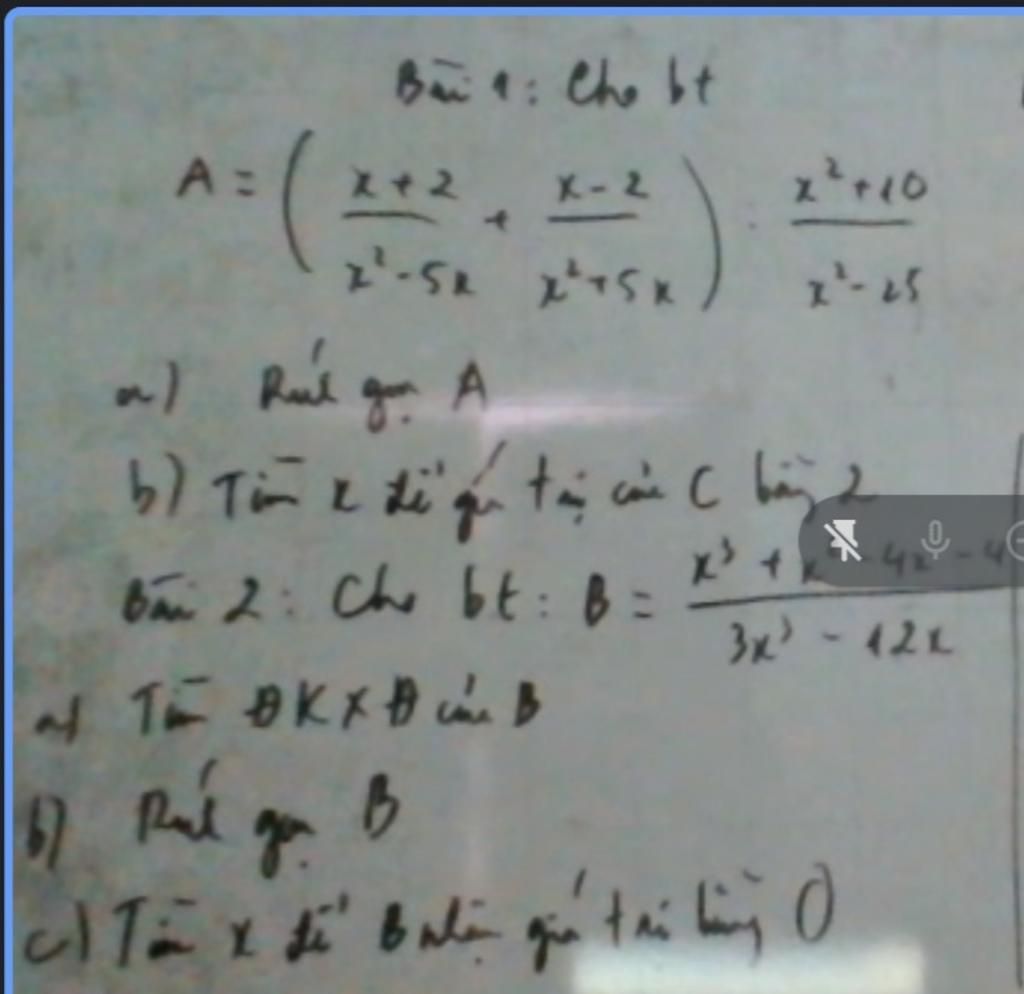 Bài 1: Cho bt
A = ( x + 2 / x² - 5x + x - 2 / x² + 5x ) : x² + 10 / x² - 25
a) Rút gọn A
b) Tìm x để giá trị của C bằng 2
Bài 2: Cho bt: B = x³ + x² - 4x - 4 / 3x³ - 12x
a) Tìm ĐKXĐ của B
b) Rút gọn B
c) Tìm x để B nhận giá trị bằng 0